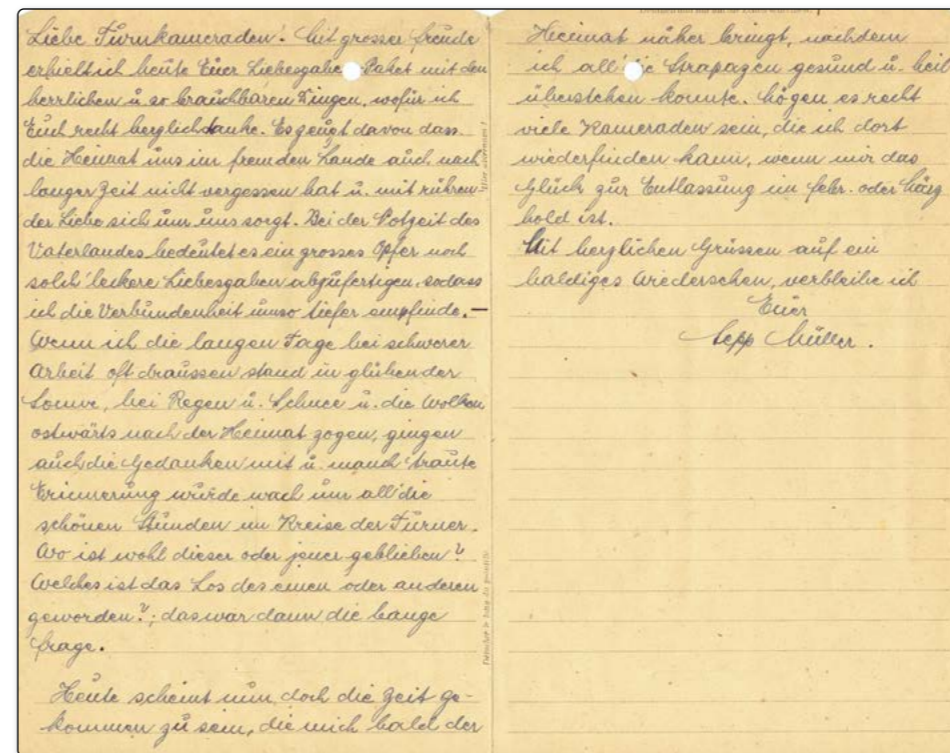 Liebe Turnkameraden! Mit grosser Freude
erhielt ich heute Euer Liebesgabe Paket mit den
herrlichen u. so brauchbaren Dingen, wofür ich
Euch recht herzlich danke. Es zeugt davon dass
die Heimat uns im fremden Lande auch nach
langer Zeit nicht vergessen hat u. mit rühren-
der Liebe sich um uns sorgt. Bei der Notzeit des
Vaterlandes bedeutet es ein grosses Opfer noch
solch' leckere Liebesgaben abzufertigen, sodass
ich die Verbundenheit umso tiefer empfinde. —
Wenn ich die langen Tage bei schwerer
Arbeit oft draussen stand in glühender
Sonne, bei Regen u. Schnee u. die Wolken
ostwärts nach der Heimat zogen, gingen
auch die Gedanken mit u. manch' traute
Erinnerung wurde wach um all' die
schönen Stunden im Kreise der Turner.
Wo ist wohl dieser oder jener geblieben?
Welches ist das Los des einen oder anderen
geworden?; das war dann die bange
Frage.
Heute scheint nun doch die Zeit ge-
kommen zu sein, die mich bald der
Heimat näher bringt, nachdem
ich all' die Strapazen gesund u. heil
überstehen konnte. Mögen es recht
viele Kameraden sein, die ich dort
wiederfinden kann, wenn mir das
Glück zur Entlassung im Febr. oder März
hold ist.
Mit herzlichen Grüssen auf ein
baldiges Wiedersehen, verbleibe ich
Euer
Sepp Müller.